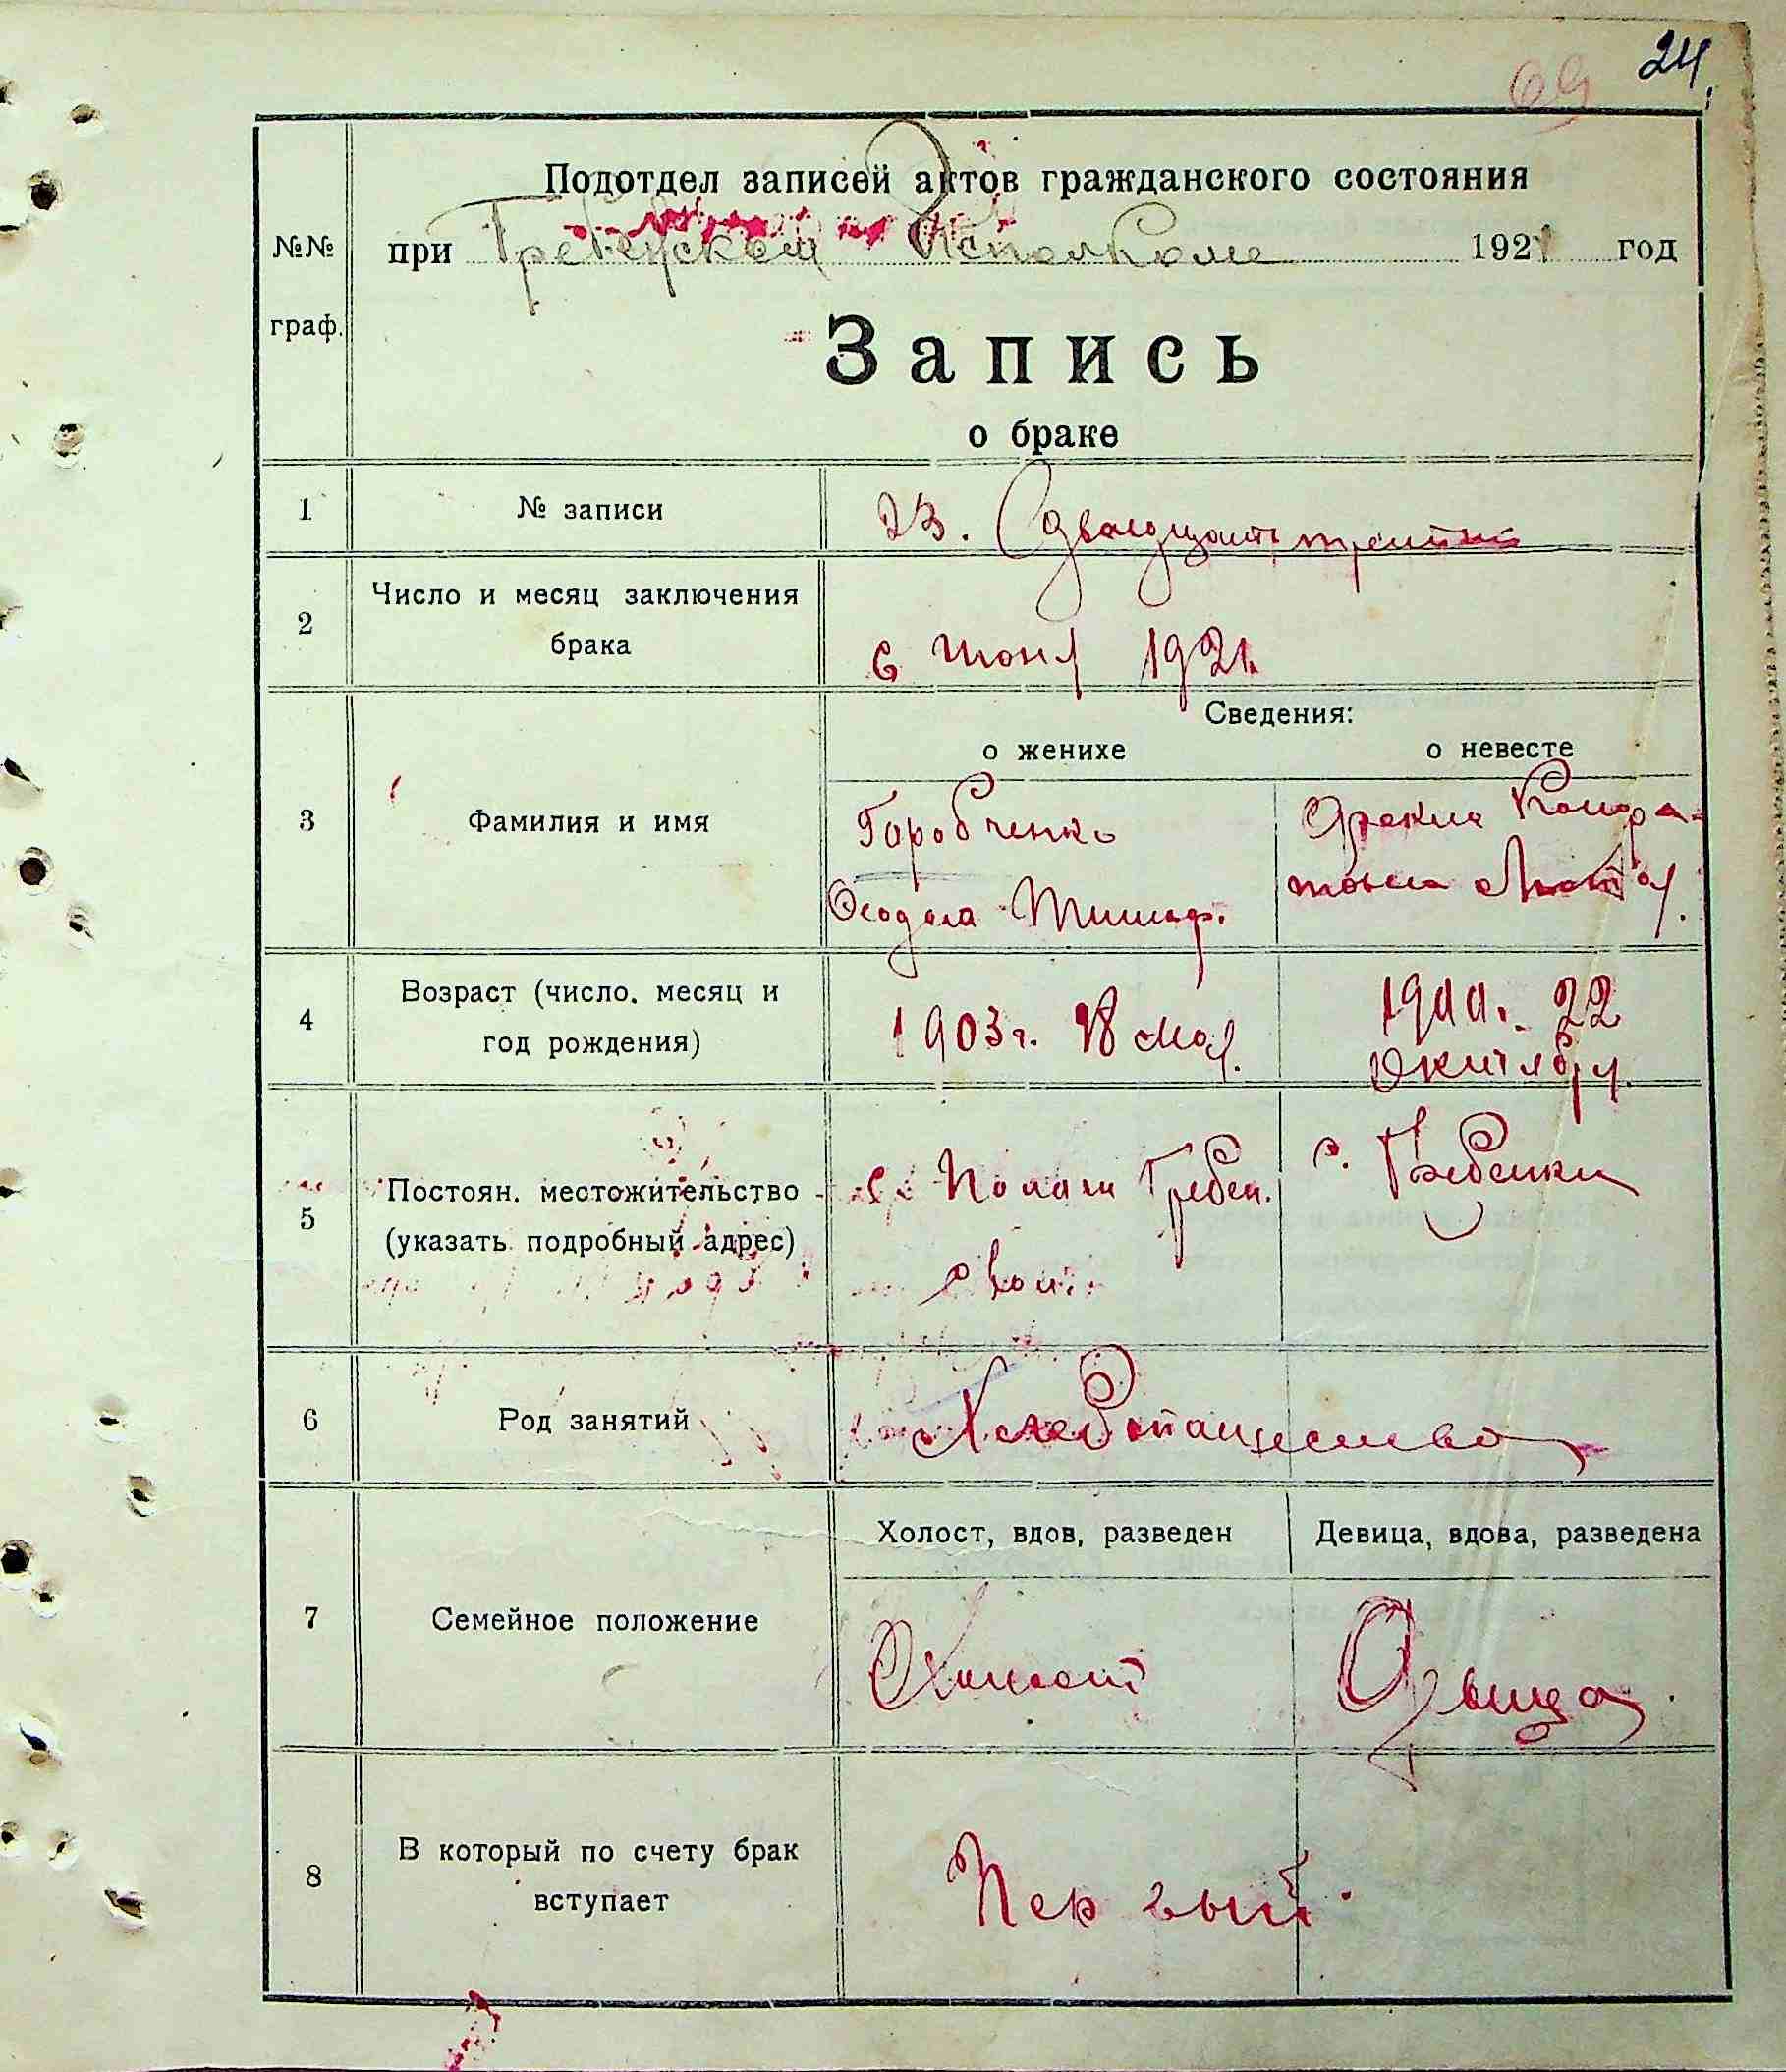 24.
69
Подотдел записей актов гражданского состояния
№№
при Исполкоме 1921 год
граф.
Запись
о браке
1 № записи 23. (двадцать
2 Число и месяц заключения
брака
6 июня 1921
Сведения:
о женихе о невесте
3 Фамилия и имя
Горобченко
4 Возраст (число, месяц и
год рождения)
1903 г. мая.
22
Октября.
5 Постоян. местожительство
(указать подробный адрес)
Гребен. с. Гребенки
6 Род занятий
Хлебопашество
7 Семейное положение
Холост, вдов, разведен Девица, вдова, разведена
Холост Девица.
8 В который по счету брак
вступает
Первый.